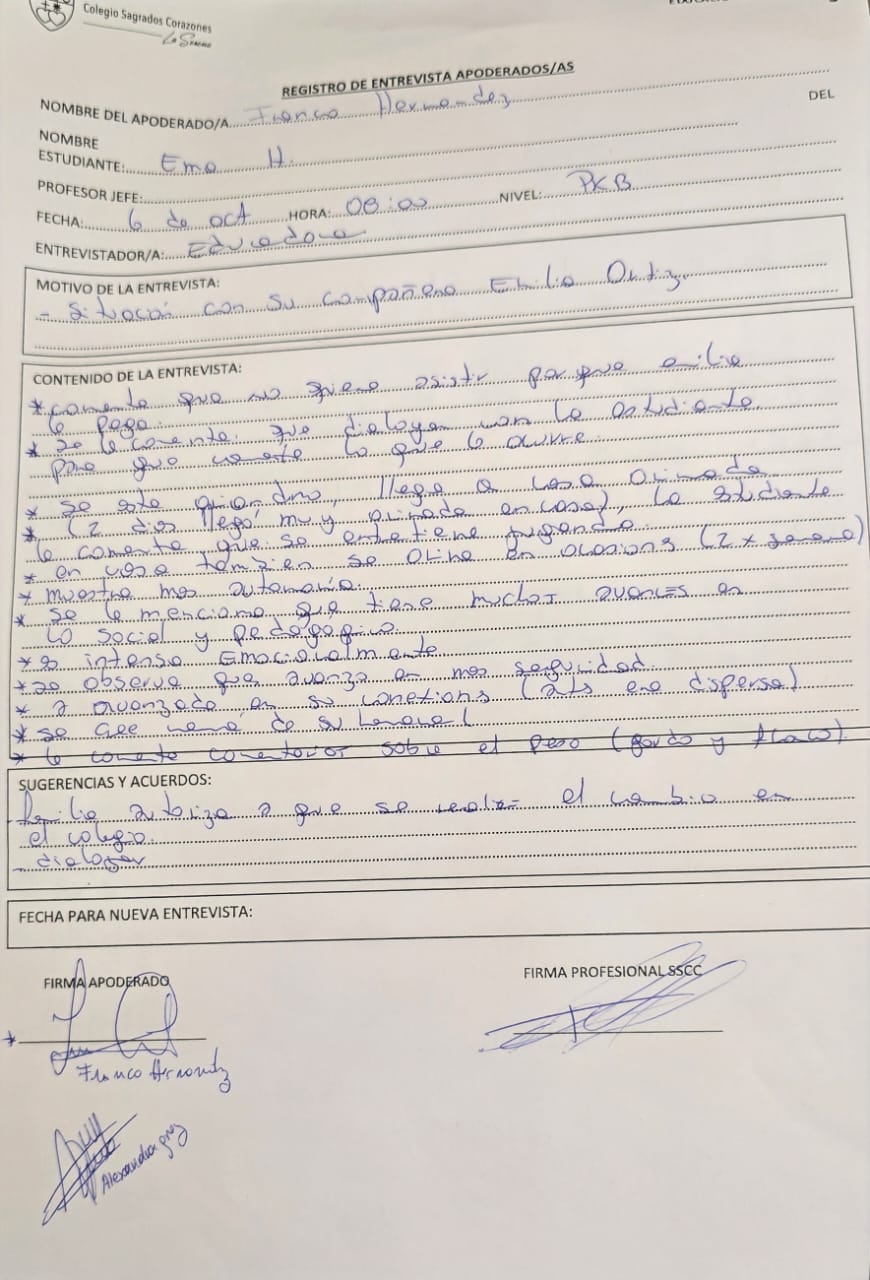 Colegio Sagrados Corazones
La Serena
REGISTRO DE ENTREVISTA APODERADOS/AS
NOMBRE DEL APODERADO/A Franco Hernandez
DEL
NOMBRE
ESTUDIANTE: Ema H.
PROFESOR JEFE:
FECHA: 6 de oct HORA: 08:00 NIVEL: PKB
ENTREVISTADOR/A: Educadora
MOTIVO DE LA ENTREVISTA:
- con su compañero Emilio Ortiz
CONTENIDO DE LA ENTREVISTA:
* comenta que no quiere asistir porque emilio
le pega.
* se le comenta que dialogan con la estudiante
para que comente lo que le ocurre.
* se esta llega a casa orinada
* (2 dias llegó muy orinada en casa), la estudiante
le comenta que se entretiene jugando.
* en casa tambien se orina en ocasions (2 x semana)
* muestra mas autonomía.
* se le menciona que tiene muchos avances en
lo social y pedagogico.
* es intensa
* se observa que avanza en mas seguridad.
* a avanzado en su conexions (ats era dispersa)
* se cree de su
* le comenta sobre el peso (gordo y flaco).
SUGERENCIAS Y ACUERDOS:
- Familia autoriza a que se realize el cambio en
el colegio.
- dialogar
FECHA PARA NUEVA ENTREVISTA:
FIRMA APODERADO
FIRMA PROFESIONAL SSCC
Franco Hernandez
Alexandra